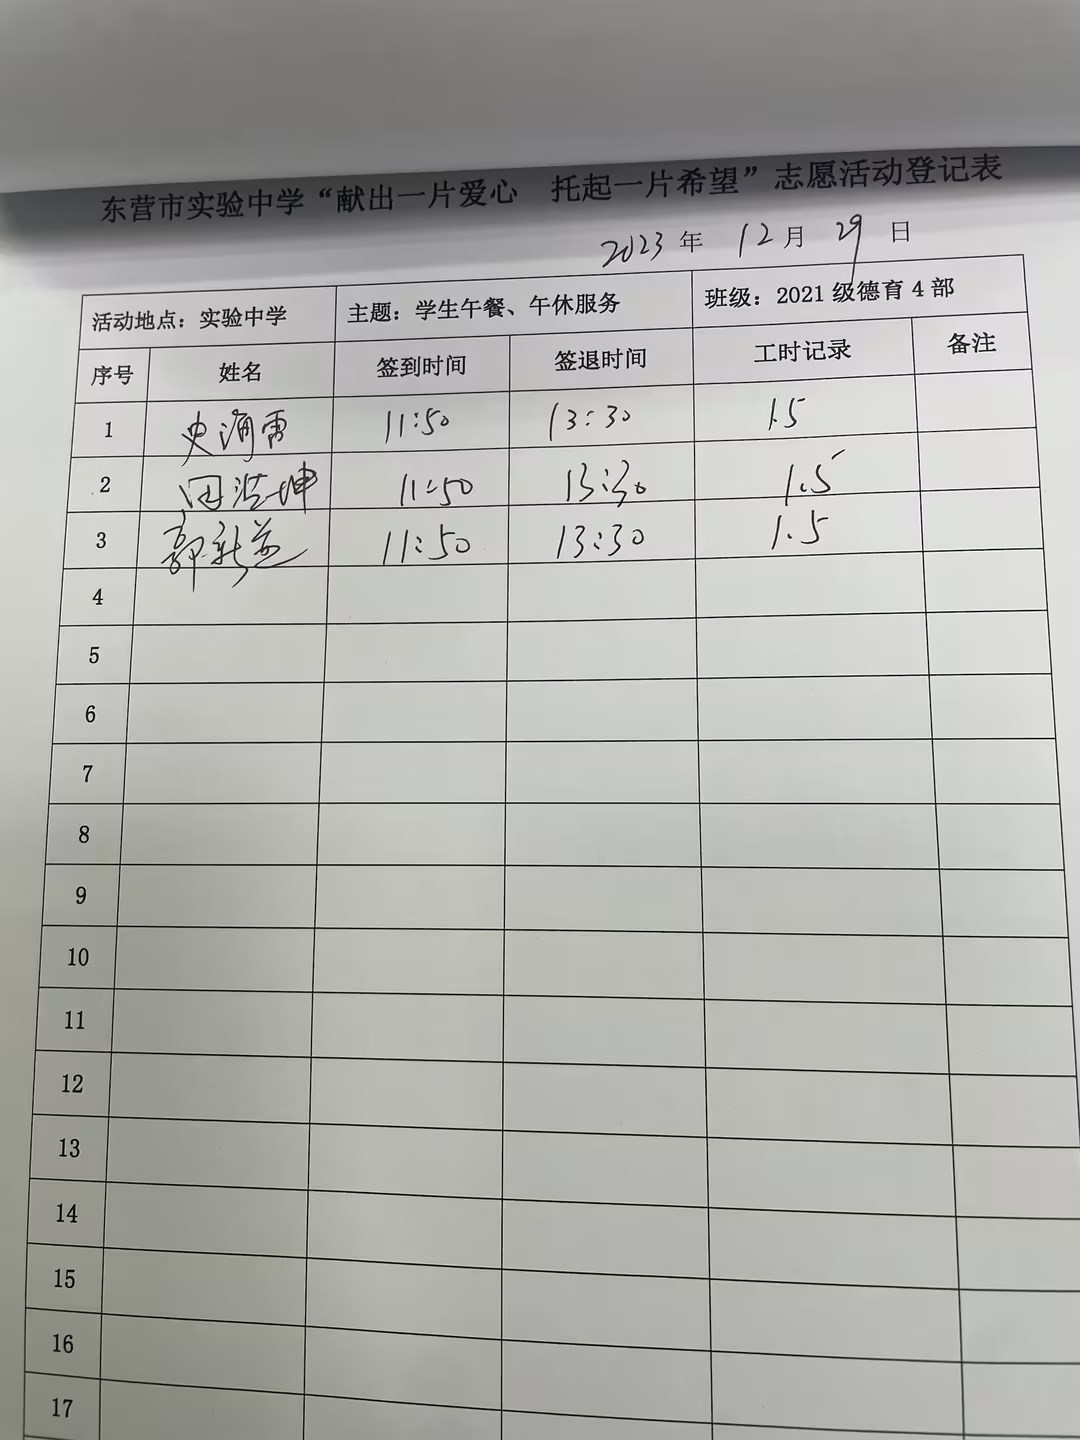 东营市实验中学“献出一片爱心　托起一片希望”志愿活动登记表
2023 年 12 月 29 日
活动地点：实验中学 主题：学生午餐、午休服务 班级：2021 级德育 4 部
序号 姓名 签到时间 签退时间 工时记录 备注
1 史涌雷 11:50 13:30 1.5
2 田洪坤 11:50 13:30 1.5
3 郭新益 11:50 13:30 1.5
4
5
6
7
8
9
10
11
12
13
14
15
16
17